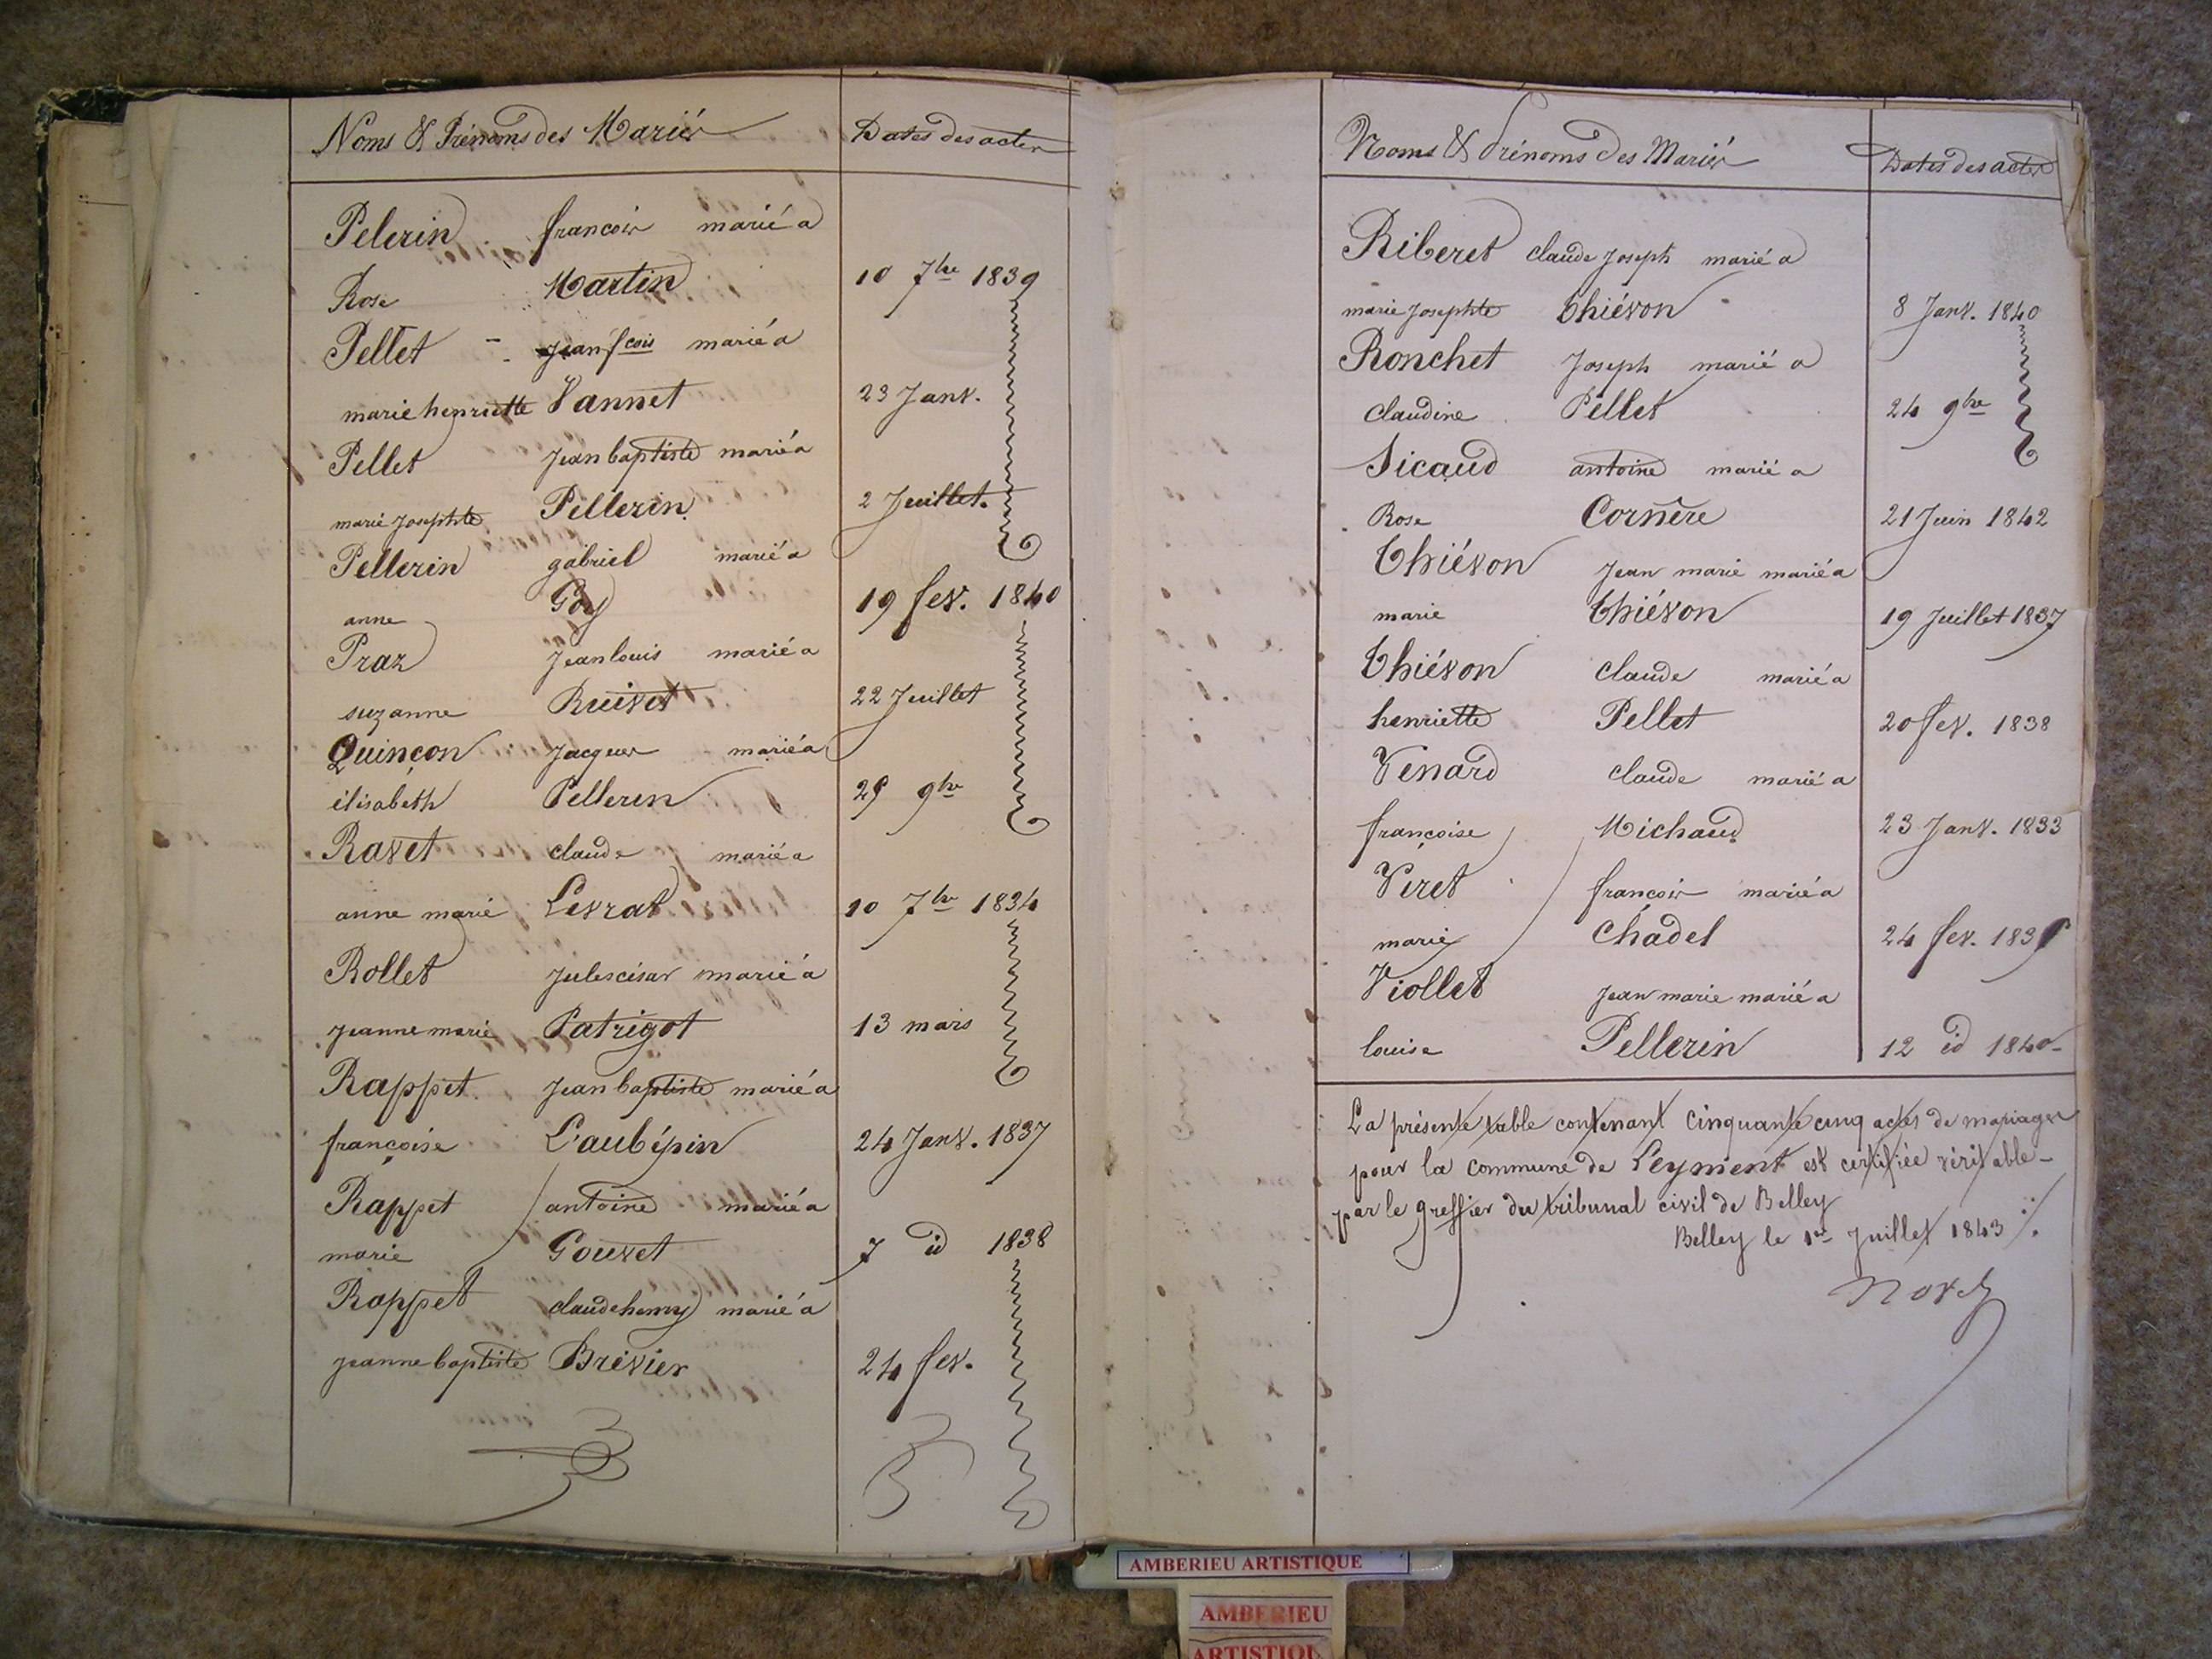 Noms & Prénoms des Mariés Dates des actes
Pelerin francois marié a
Rose Martin 10 7bre 1839
Pellet jean fcois marié a
marie henriette Vannet 23 Janv.
Pellet Jean baptiste marié a
marie Josephte Pellerin 2 Juillet.
Pellerin gabriel marié a
anne Goy 19 fev. 1840
Praz Jean louis marié a
suzanne Ruivet 22 Juillet
Quinçon Jacques marié a
élisabeth Pellerin 25 9bre
Ravet claude marié a
anne marie Levrat 10 7bre 1834
Rollet Jules césar marié a
Jeanne marie Patrigot 13 mars
Rappet Jean baptiste marié a
françoise L'aubépin 24 Janv. 1837
Rappet antoine marié a
marie Gouvet 7 id 1838
Rappet claude henry marié a
jeanne baptiste Brévier 24 fev.
Noms & Prénoms des Mariés Dates des actes
Riberet claude Joseph marié a
marie Josephte Thiévon 8 Janv. 1840
Ronchet Joseph marié a
claudine Pellet 24 9bre
Sicaud antoine marié a
Rose Cornere 21 Juin 1842
Thiévon Jean marie marié a
marie Thiévon 19 Juillet 1837
Thiévon claude marié a
henriette Pellet 20 fev. 1838
Venard claude marié a
françoise Michaud 23 Janv. 1833
Veret françois marié a
marie Chadel 24 fev.
Viollet Jean marie marié a
louise Pellerin 12 id 1840
La présente table contenant cinquante cinq actes de mariages
pour la commune de Leyment est certifiée véritable
par le greffier du tribunal civil de Belley
Belley le 1er Juillet 1843
AMBERIEU ARTISTIQUE
AMBERIEU
ARTISTIQU